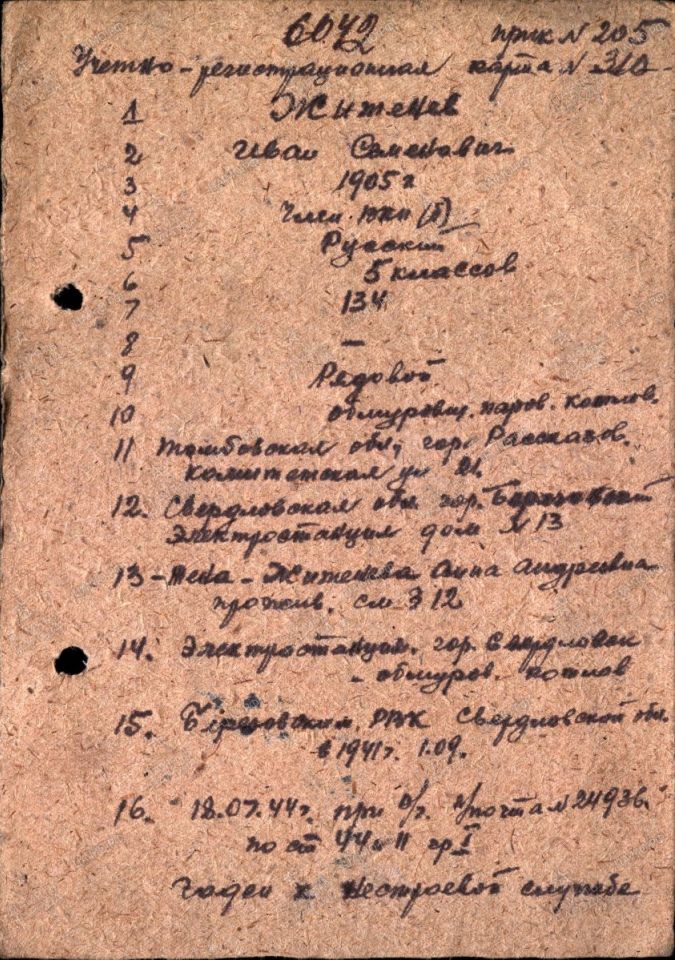 6042
прик N 205
Учетно-регистрационная карта N 310
1 Житенев
2 Иван Семенович
3 1905 г
4 Член ВКП (б)
5 Русский
6 5 классов
7 134
8 —
9 Рядовой
10 обмуровщ. паров. котлов.
11 Тамбовская обл, гор. Рассказов.
Комитетская ул
12. Свердловская обл. гор.
электростанция дом N 13
13 - жена - Житенева Анна Андреевна
прожив. см 12
14. Электростанция. гор. Свердловск
- обмуров. котлов
15. Березовским РВК Свердловской обл.
в 1941 г. 1.09.
16. 18.07.44 г. при п/почта N 24936
по ст 44 II гр I
Годен к нестроевой службе